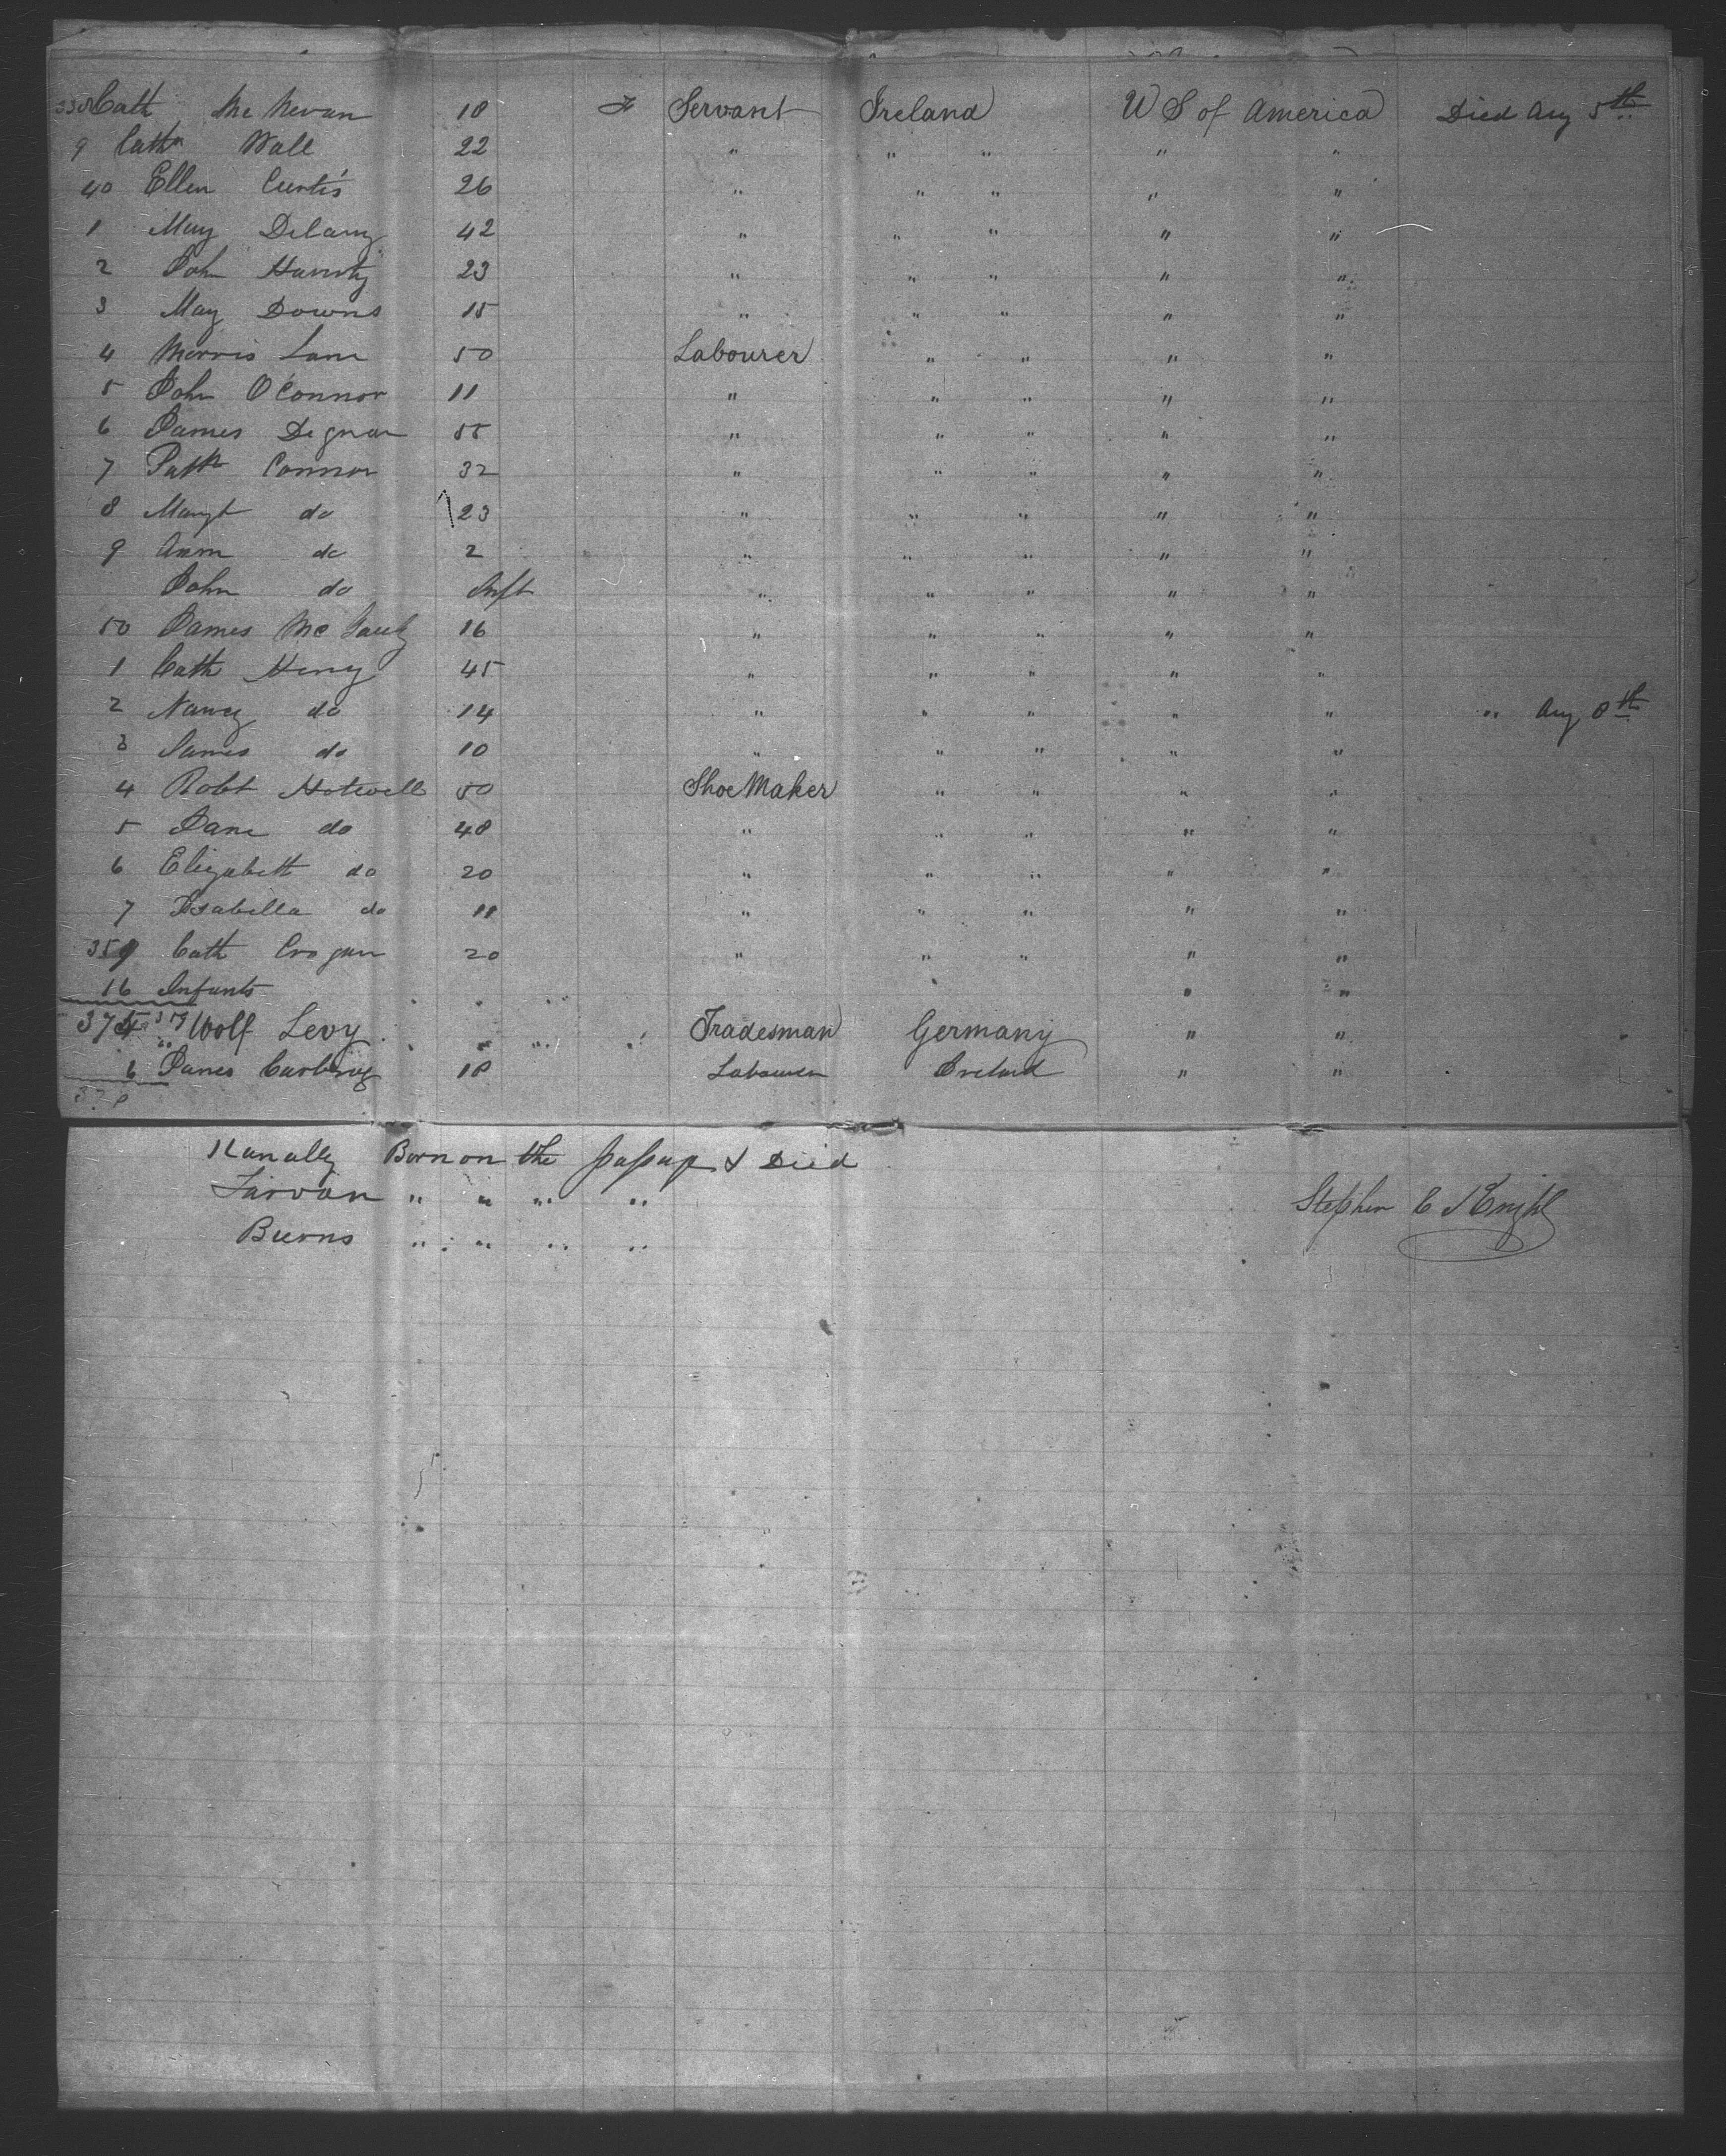 338 Cath McNevan 18 F Servant Ireland U S of America Died Aug 5th
9 Cath Wall 22 " " " " "
40 Ellen Curtis 26 " " " " "
1 Mary Delany 42 " " " " "
2 John 23 " " " " "
3 Mary Downs 15 " " " " "
4 Morris Lane 50 Labourer " " " "
5 John O'Connor 11 " " " " "
6 James Degnan 55 " " " " "
7 Patk Connor 32 " " " " "
8 Margt do 23 " " " " "
9 Ann do 2 " " " " "
John do Inft " " " " "
50 James Mc 16 " " " " "
1 Cath Henry 45 " " " " "
2 Nancy do 14 " " " " " " Aug 8th
3 James do 10 " " " " "
4 Robt Hotwell 50 Shoe Maker " " " "
5 Jane do 48 " " " " "
6 Elizabeth do 20 " " " " "
7 Isabella do 11 " " " " "
359 Cath Crogan 20 " " " " "
16 Infants " "
Wolf Levy Tradesman Germany " "
6 James 18 Labourer Ireland " "
Kanally Born on the passage & Died
Farvan " " " "
Burns " " " "
Stephen C Knight